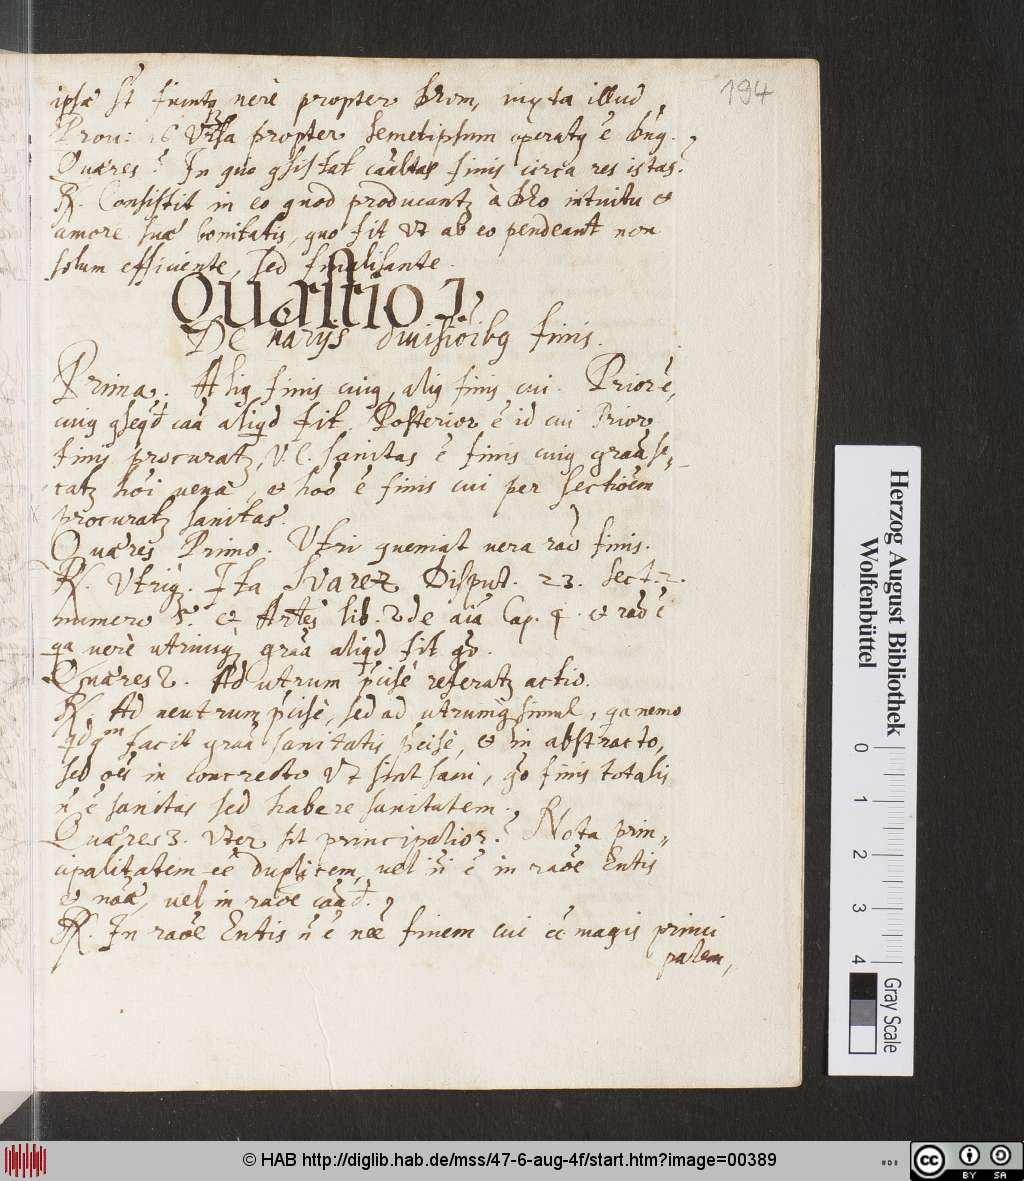 194
ipsæ st fiunt verè propter Deum, iuxta illud
Prou: 16 Vnsa propter semetipsum operatq ē dñq.
Quæres? In quo gsistat caalitas finis circa res istas?
R. Consistit in eo quod producantz à Deo intuitu et
amore suæ bonitatis, quo fit vt ab eo pendeant non
solum efficiente, sed finalisante.
Quæstio 2
De varijs diuisioibq finis.
Prima. Aliq finis cuiq, aliq finis cui. Prior ē,
cuiq caā aliqd fit. Posterior ē id cui Prior
finis procuratz, V.C. sanitas ē finis cuiq graā se-
catz hoi vena, et hoō ē finis cui per sectioēm
procuratz sanitas.
Quæres Primo. Vtri gueniat vera raō finis.
R. Vtriq. Ita Suarez Disput. 23. sect. 2.
numero et Artēs lib. 2 de aīa Cap. 4. et raō ē
qa verè utriusq graā aliqd fit gō.
Quæres 2. Ad utrum pcisè referatz actio.
R. Ad neutrum pcisè, sed ad utrumq simul, qa nemo
facit graā sanitatis pcisè, et in abstracto,
sed oēs in concreto vt sint sani, gō finis totalis
ñ ē sanitas sed habere sanitatem.
Quæres 3. Vter sit principalior? Nota prin-
cipalitatem eē duplicem, vel in raoē Entis
et vel in raoē
R. In raoē Entis ñ ē finem cui eē magis princi
palem,
Herzog August Bibliothek
Wolfenbüttel
0 1 2 3 4
Gray Scale
© HAB http://diglib.hab.de/mss/47-6-aug-4f/start.htm?image=00389
cc BY SA